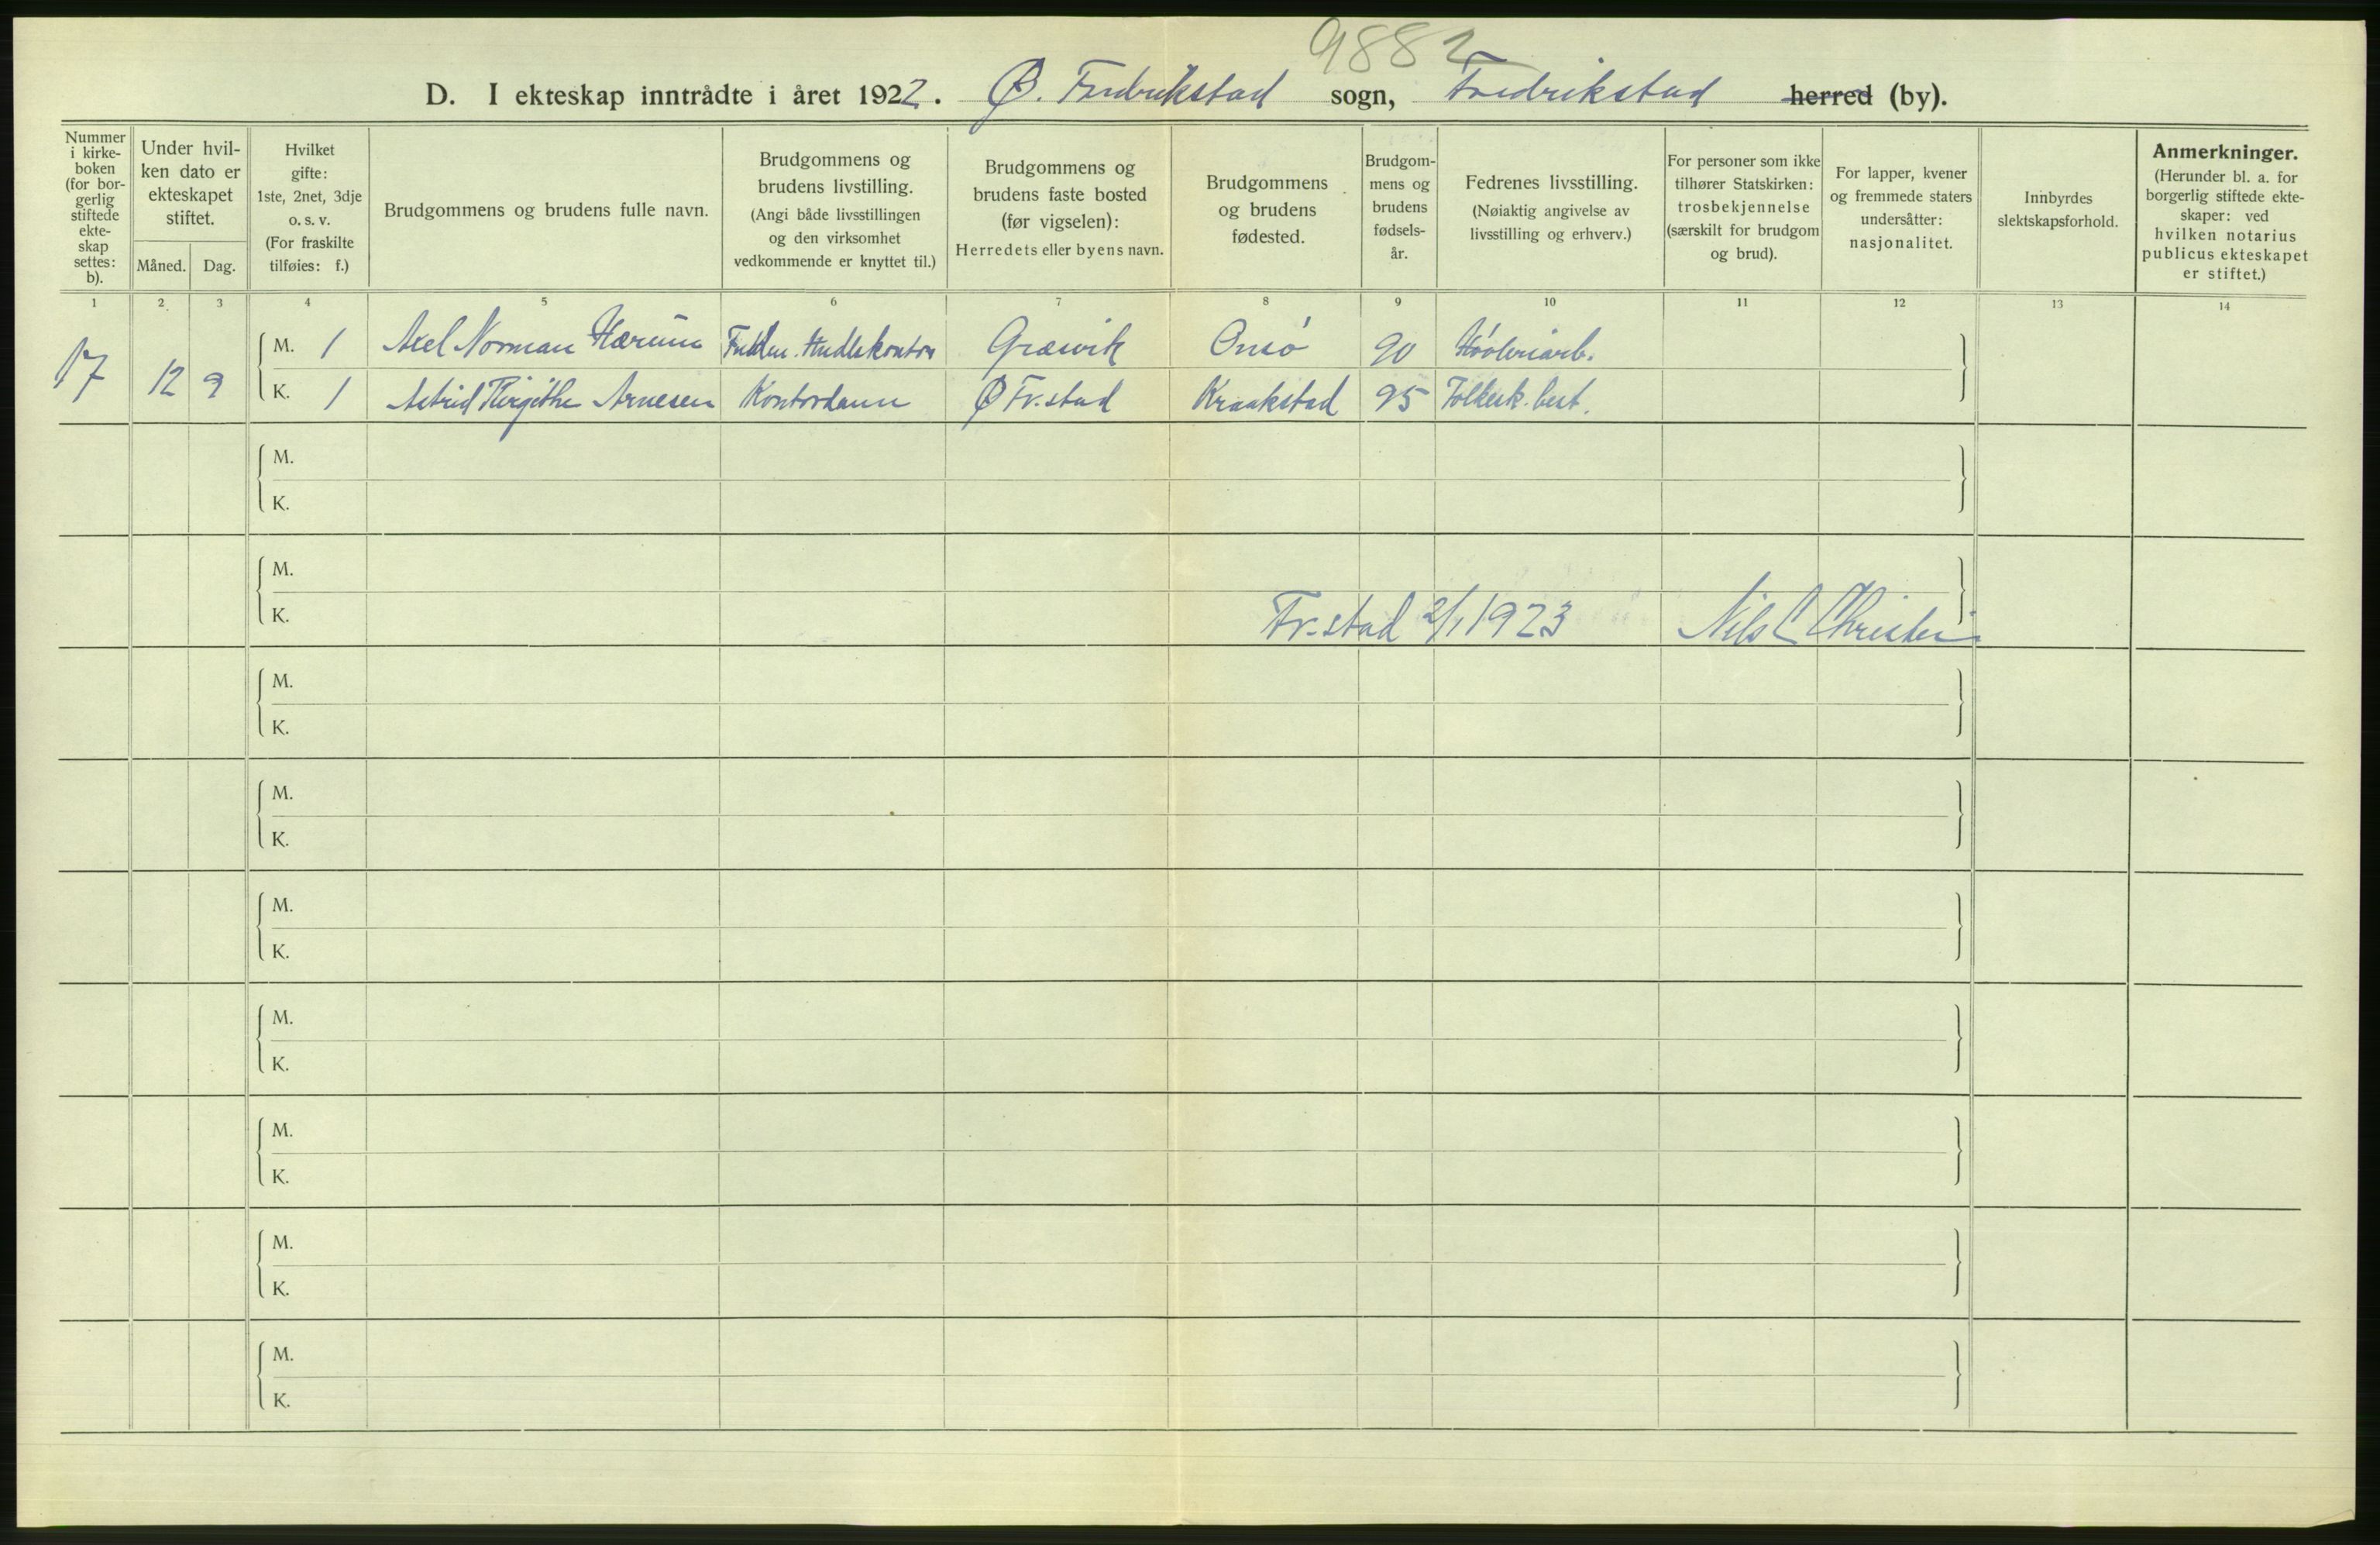 9882
D. I ekteskap inntrådte i året 1922. Ø. Fredrikstad sogn, Fredrikstad herred (by).
Nummer i kirke- boken (for bor- gerlig stiftede ekte- skap settes: b).
Under hvil- ken dato er ekteskapet stiftet.
Måned. Dag.
Hvilket gifte: 1ste, 2net, 3dje o. s. v. (For fraskilte tilføies: f.)
Brudgommens og brudens fulle navn.
Brudgommens og brudens livstilling. (Angi både livsstillingen og den virksomhet vedkommende er knyttet til.)
Brudgommens og brudens faste bosted (før vigselen): Herredets eller byens navn.
Brudgommens og brudens fødested.
Brudgom- mens og brudens fødsels- år.
Fedrenes livsstilling. (Nøiaktig angivelse av livsstilling og erhverv.)
For personer som ikke tilhører Statskirken: trosbekjennelse (særskilt for brudgom og brud).
For lapper, kvener og fremmede staters undersåtter: nasjonalitet.
Innbyrdes slektskapsforhold.
Anmerkninger. (Herunder bl. a. for borgerlig stiftede ekte- skaper: ved hvilken notarius publicus ekteskapet er stiftet.)
1 2 3 4 5 6 7 8 9 10 11 12 13 14
17 12 9
M. 1 Axel Norman Hærum Græsvik Onsö 90 Hövleriarb.
K. 1 Astrid Birgithe Arnesen Kontordame Ø Fr.stad Kraakstad 95 Folkesk. best.
M.
K.
M.
K.
Fr.stad 2/1 1923 Nils C Christen
M.
K.
M.
K.
M.
K.
M.
K.
M.
K.
M.
K.
M.
K.